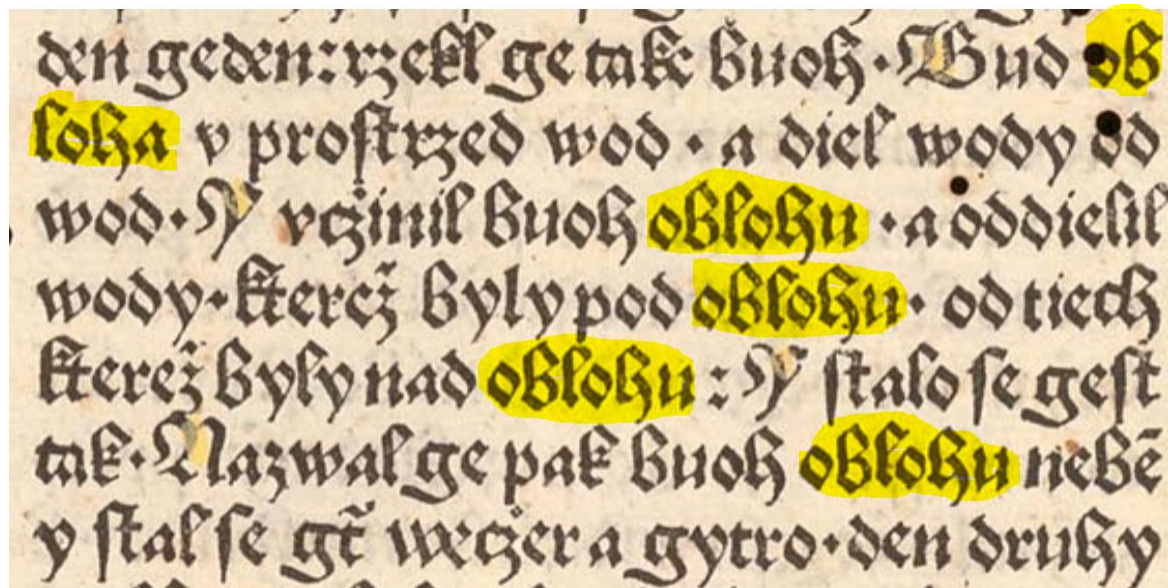 den geden: rzekl ge take buoh · Bud ob
loha v prostrzed wod · a diel wody od
wod · Y vcžinil buoh oblohu · a oddielil
wody · kterež byly pod oblohu · od tiech
kterež byly nad oblohu : Y stalo se gest
tak · Nazwal ge pak buoh oblohu nebē
y stal se gt̄ weczer a gytro · den druhy